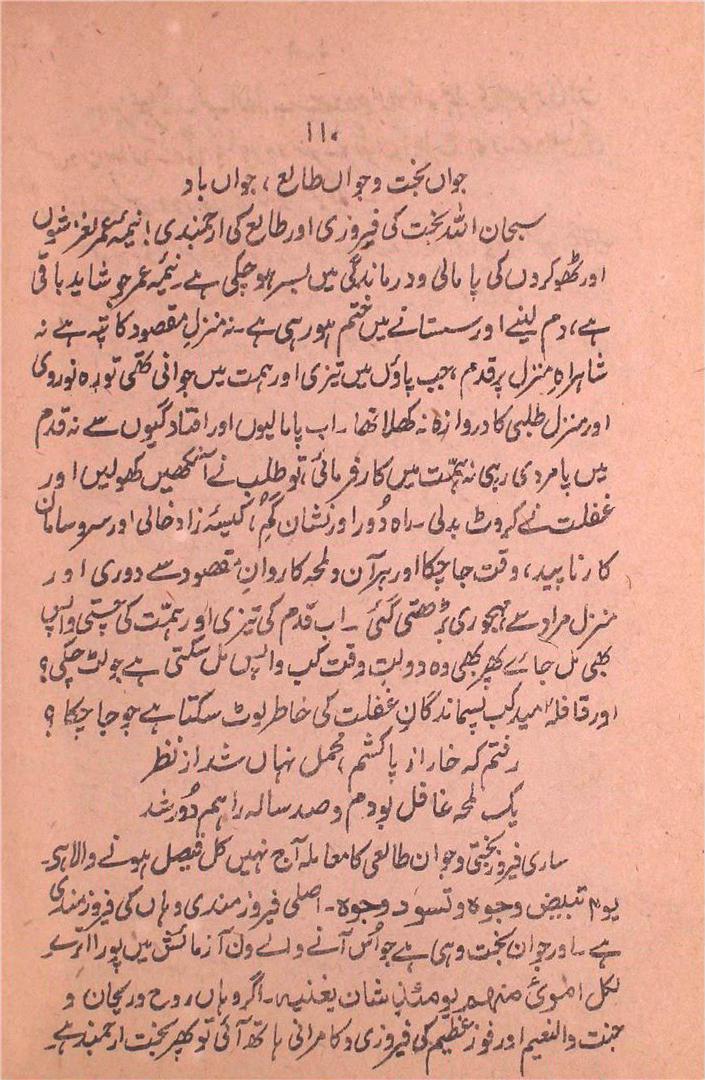 ۱۱۰
جواں بخت و جواں طالع، جواں باد
سبحان اللہ بخت کی فیروزی اور طالع کی ارجمندی! نیمۂ عمر لغزشوں
اور ٹھوکروں کی پامالی و درماندگی میں بسر ہو چکی ہے۔ نیمۂ عمر جو شاید باقی
ہے، دم لینے اور سستانے میں ختم ہو رہی ہے۔ نہ منزلِ مقصود کا پتہ ہے نہ
شاہراہِ منزل پر قدم، جب پاؤں میں تیزی اور ہمت میں جوانی تھی تو رہ نوردی
اور منزل طلبی کا دروازہ نہ کھلا تھا۔ اب پامالیوں اور افتادگیوں سے نہ قدم
میں پامردی رہی نہ ہمّت میں کارفرمائی، تو طلب نے آنکھیں کھولیں اور
غفلت نے کروٹ بدلی۔ راہ دُور اور نشان گم، کیسۂ زاد خالی اور سروسامان
کار ناپید، وقت جا چکا اور ہر آن و لمحہ کاروانِ مقصود سے دوری اور
منزل مراد سے مہجوری بڑھتی گئی۔ اب قدم کی تیزی اور ہمّت کی چستی واپس
بھی مل جائے پھر بھی وہ دولتِ وقت کب واپس مل سکتی ہے جو لٹ چکی؟
اور قافلۂ امید کب پسماندگانِ غفلت کی خاطر لوٹ سکتا ہے جو جا چکا؟
رفتم کہ خار از پا کشم، محمل نہاں شد از نظر
یک لمحہ غافل بودم و صد سالہ راہم دُور شد
ساری فیروز بختی و جوان طالعی کا معاملہ آج نہیں کل فیصل ہونے والا ہی۔
یوم تبیض وجوہ و تسود وجوہ۔ اصلی فیروزمندی وہاں کی فیروزمندی
ہے۔ اور جوان بخت وہی ہے جو اُس آنے والے دن آزمائش میں پورا اترے
لکل امرئ منھم یومئذ شان یغنیہ۔ اگر وہاں روح و ریحان و
جنت والنعیم اور فوز عظیم کی فیروزی و کامرانی ہاتھ آئی تو پھر بخت ارجمند ہے۔